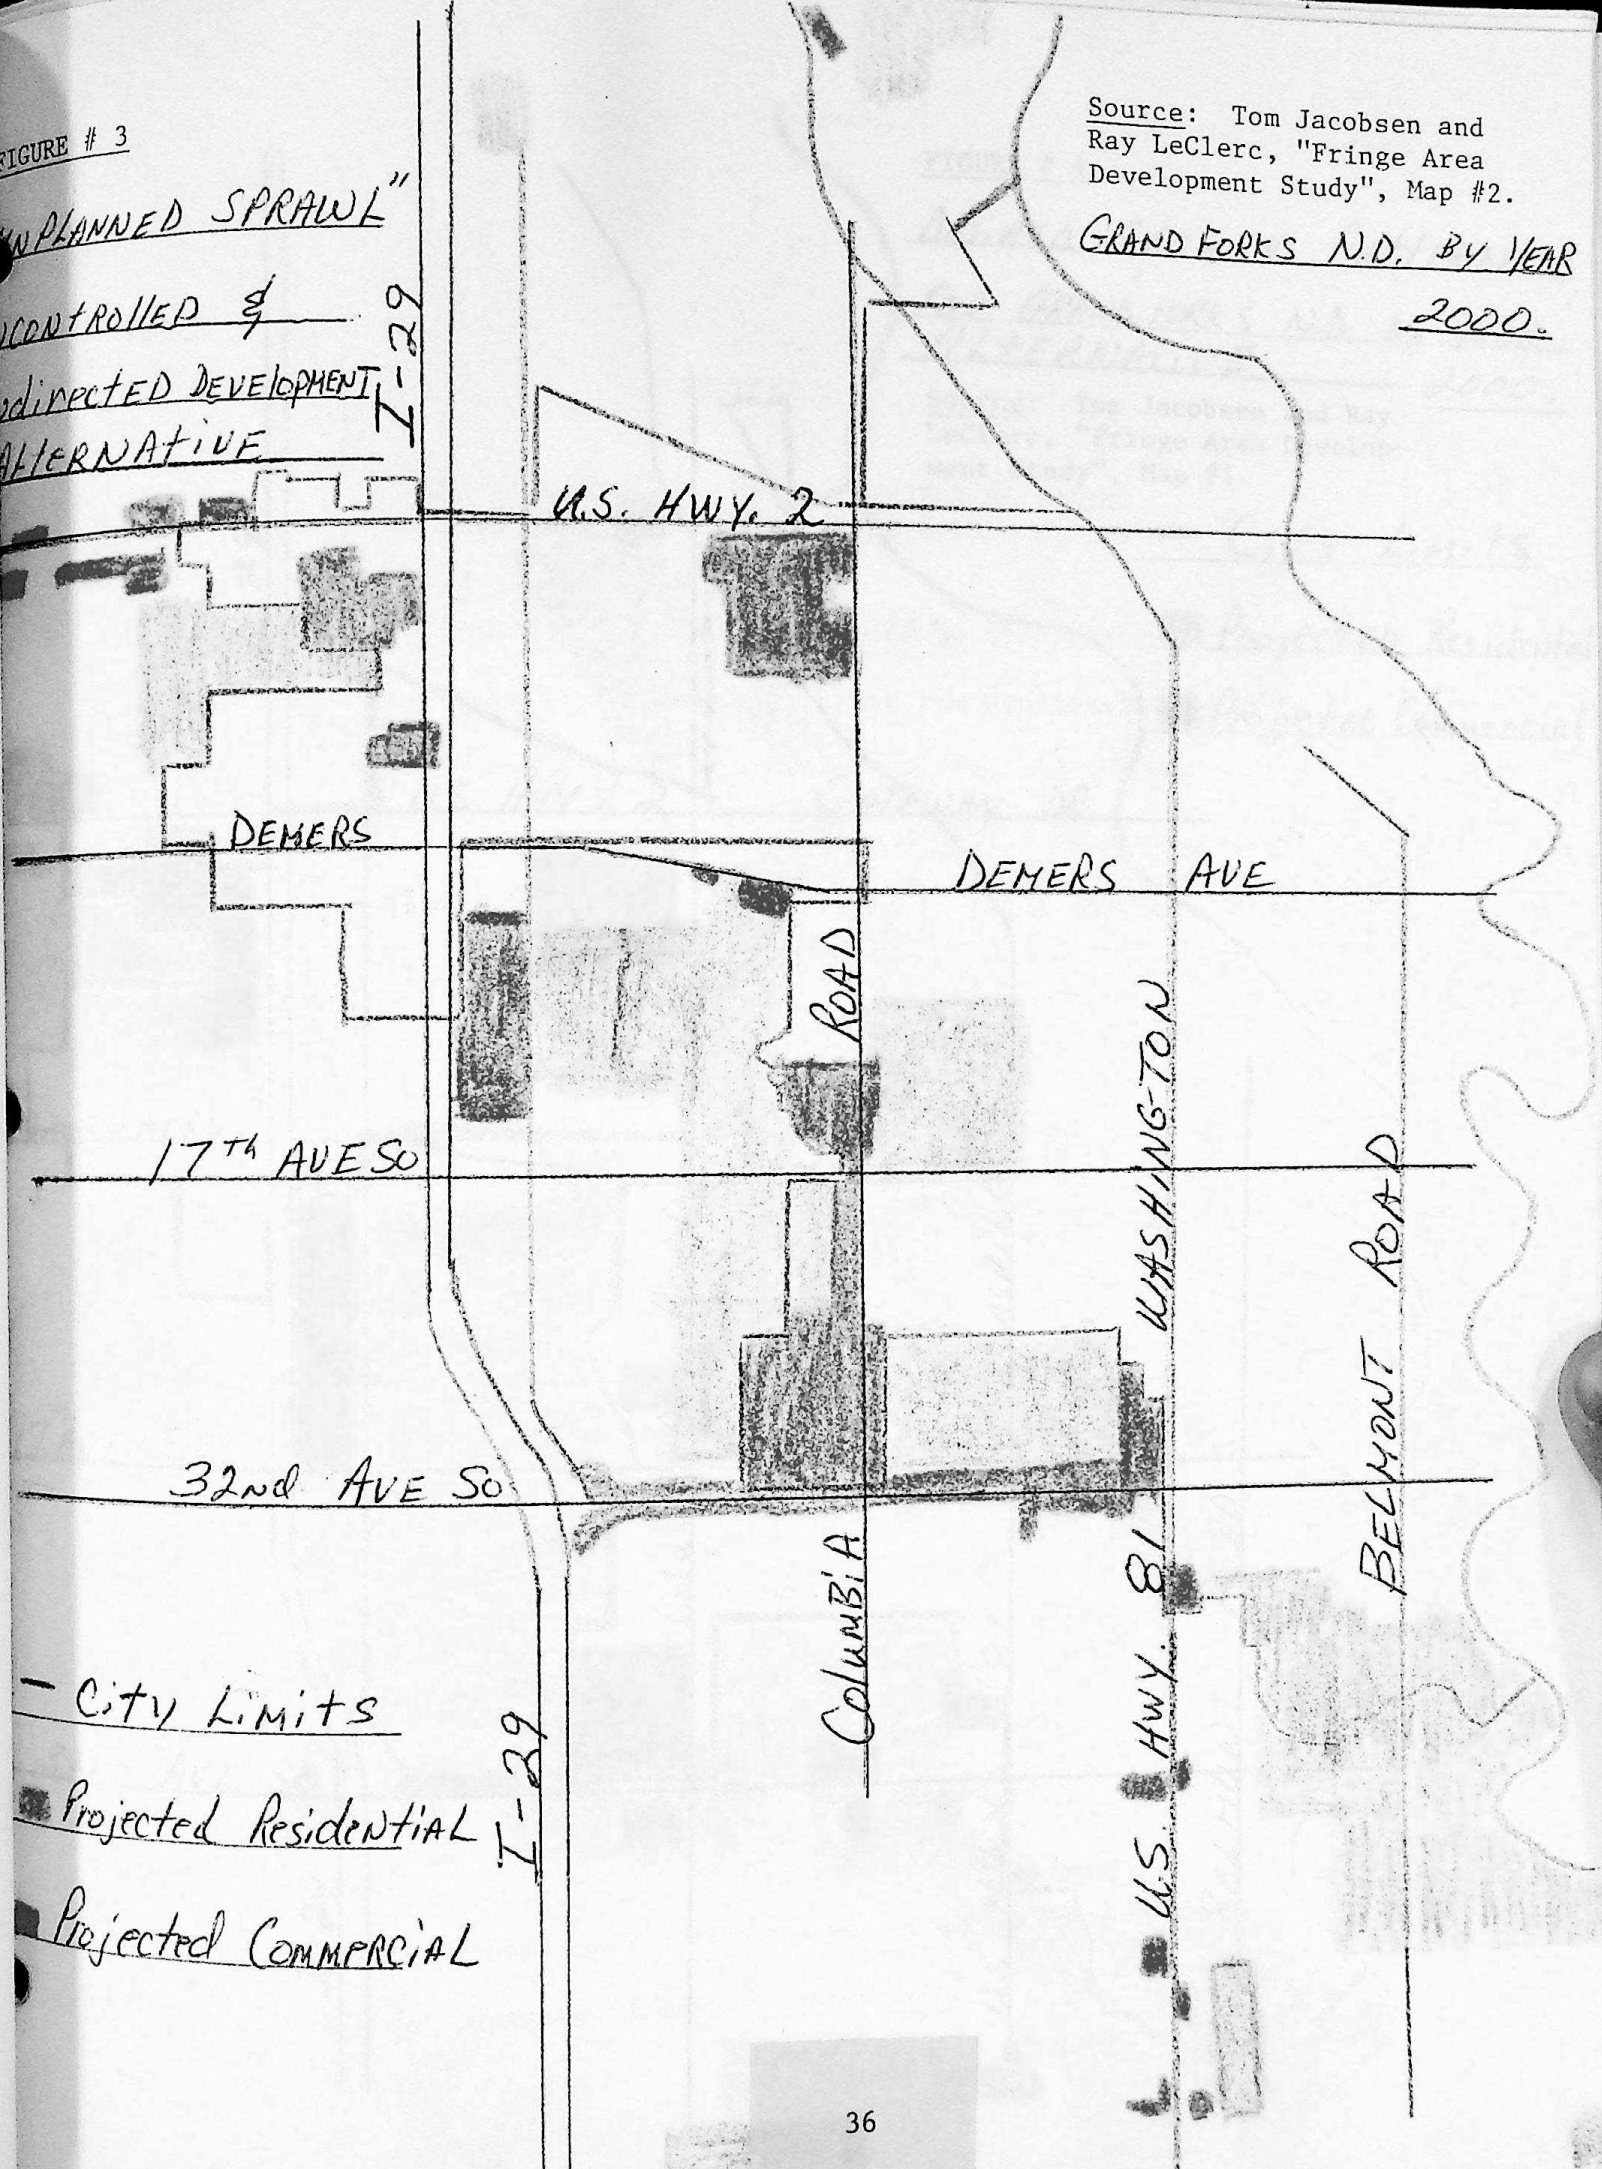 FIGURE # 3
UNPLANNED SPRAWL"
UNCONTROLLED &
UNDIRECTED DEVELOPMENT
ALTERNATIVE
Source: Tom Jacobsen and
Ray LeClerc, "Fringe Area
Development Study", Map #2.
GRAND FORKS N.D. BY YEAR
2000.
I-29
U.S. HWY. 2
DEMERS
DEMERS AVE
ROAD
WASHINGTON
17Th AVE SO
BELMONT ROAD
32Nd AVE SO
COLUMBiA
U.S. HWY. 81
I-29
City Limits
Projected ResideNtiAL
Projected COMMERCiAL
36